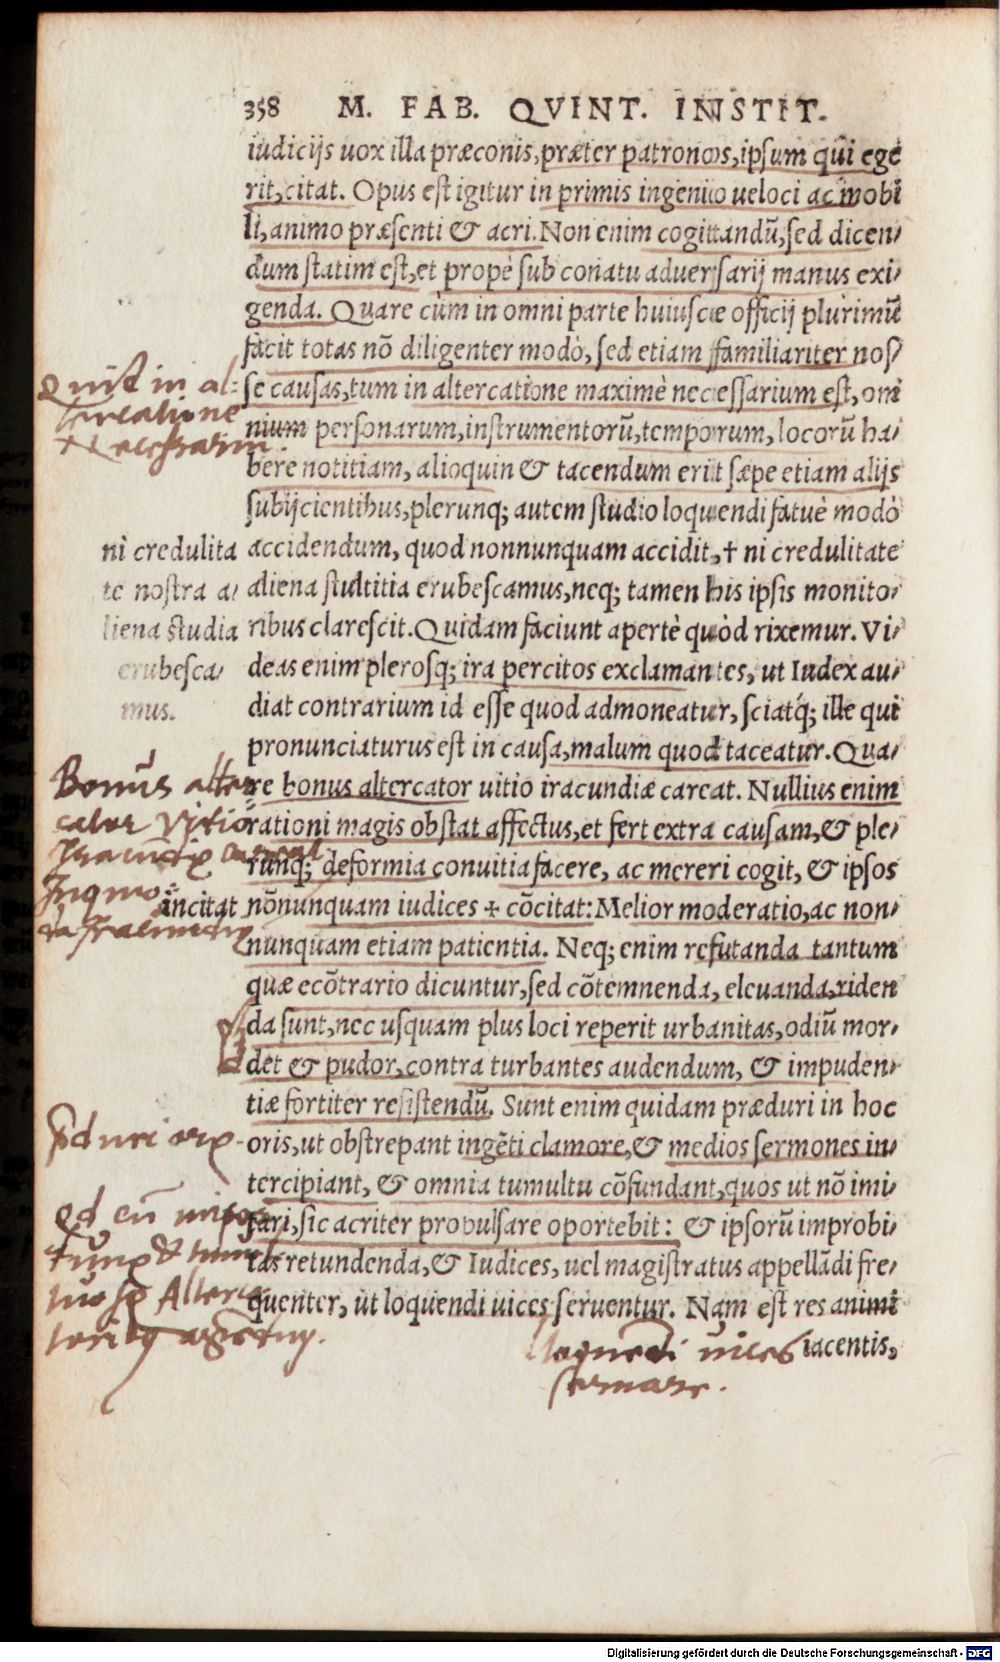 358 M. FAB. QVINT. INSTIT.
iudicijs uox illa præconis, præter patronos, ipsum qui ege
rit, citat. Opus est igitur in primis ingenio ueloci ac mobi
li, animo præsenti & acri. Non enim cogitandū, sed dicen/
dum statim est, et propè sub conatu aduersarij manus exi/
genda. Quare cùm in omni parte huiusce officij plurimũ
facit totas nõ diligenter modò, sed etiam familiariter nos/
se causas, tum in altercatione maximè necessarium est, om
nium personarum, instrumentorũ, temporum, locorũ ha/
bere notitiam, alioquin & tacendum erit sæpe etiam alijs
subijcientibus, plerunq; autem studio loquendi fatuè modò
accidendum, quod nonnunquam accidit, † ni credulitate
aliena stultitia erubescamus, neq; tamen his ipsis monito/
ribus clarescit. Quidam faciunt apertè quòd rixemur. Vi/
deas enim plerosq; ira percitos exclamantes, ut Iudex au/
diat contrarium id esse quod admoneatur, sciatq́; ille qui
pronunciaturus est in causa, malum quod taceatur. Qua/
re bonus altercator uitio iracundiæ careat. Nullius enim
rationi magis obstat affectus, et fert extra causam, & ple/
runq; deformia conuitia facere, ac mereri cogit, & ipsos
nõnunquam iudices + cõcitat: Melior moderatio, ac non/
nunquam etiam patientia. Neq; enim refutanda tantum
quæ ecõtrario dicuntur, sed cõtemnenda, eleuanda, riden
da sunt, nec usquam plus loci reperit urbanitas, odiũ mor/
det & pudor, contra turbantes audendum, & impuden/
tiæ fortiter resistendũ. Sunt enim quidam præduri in hoc
oris, ut obstrepant ingẽti clamore, & medios sermones in/
tercipiant, & omnia tumultu cõfundant, quos ut nõ imi
tari, sic acriter propulsare oportebit: & ipsorũ improbi/
tas retundenda, & Iudices, uel magistratus appellãdi fre/
quenter, ut loquendi uices seruentur. Nam est res animi
iacentis,
Quid in al-
tercatione
necessariũ
ni credulita
te nostra a/
liena studia
erubesca/
mus.
Bonus alter
cator vitio
iracundiæ careat
incitat
uices
seruare.
Digitalisierung gefördert durch die Deutsche Forschungsgemeinschaft - DFG